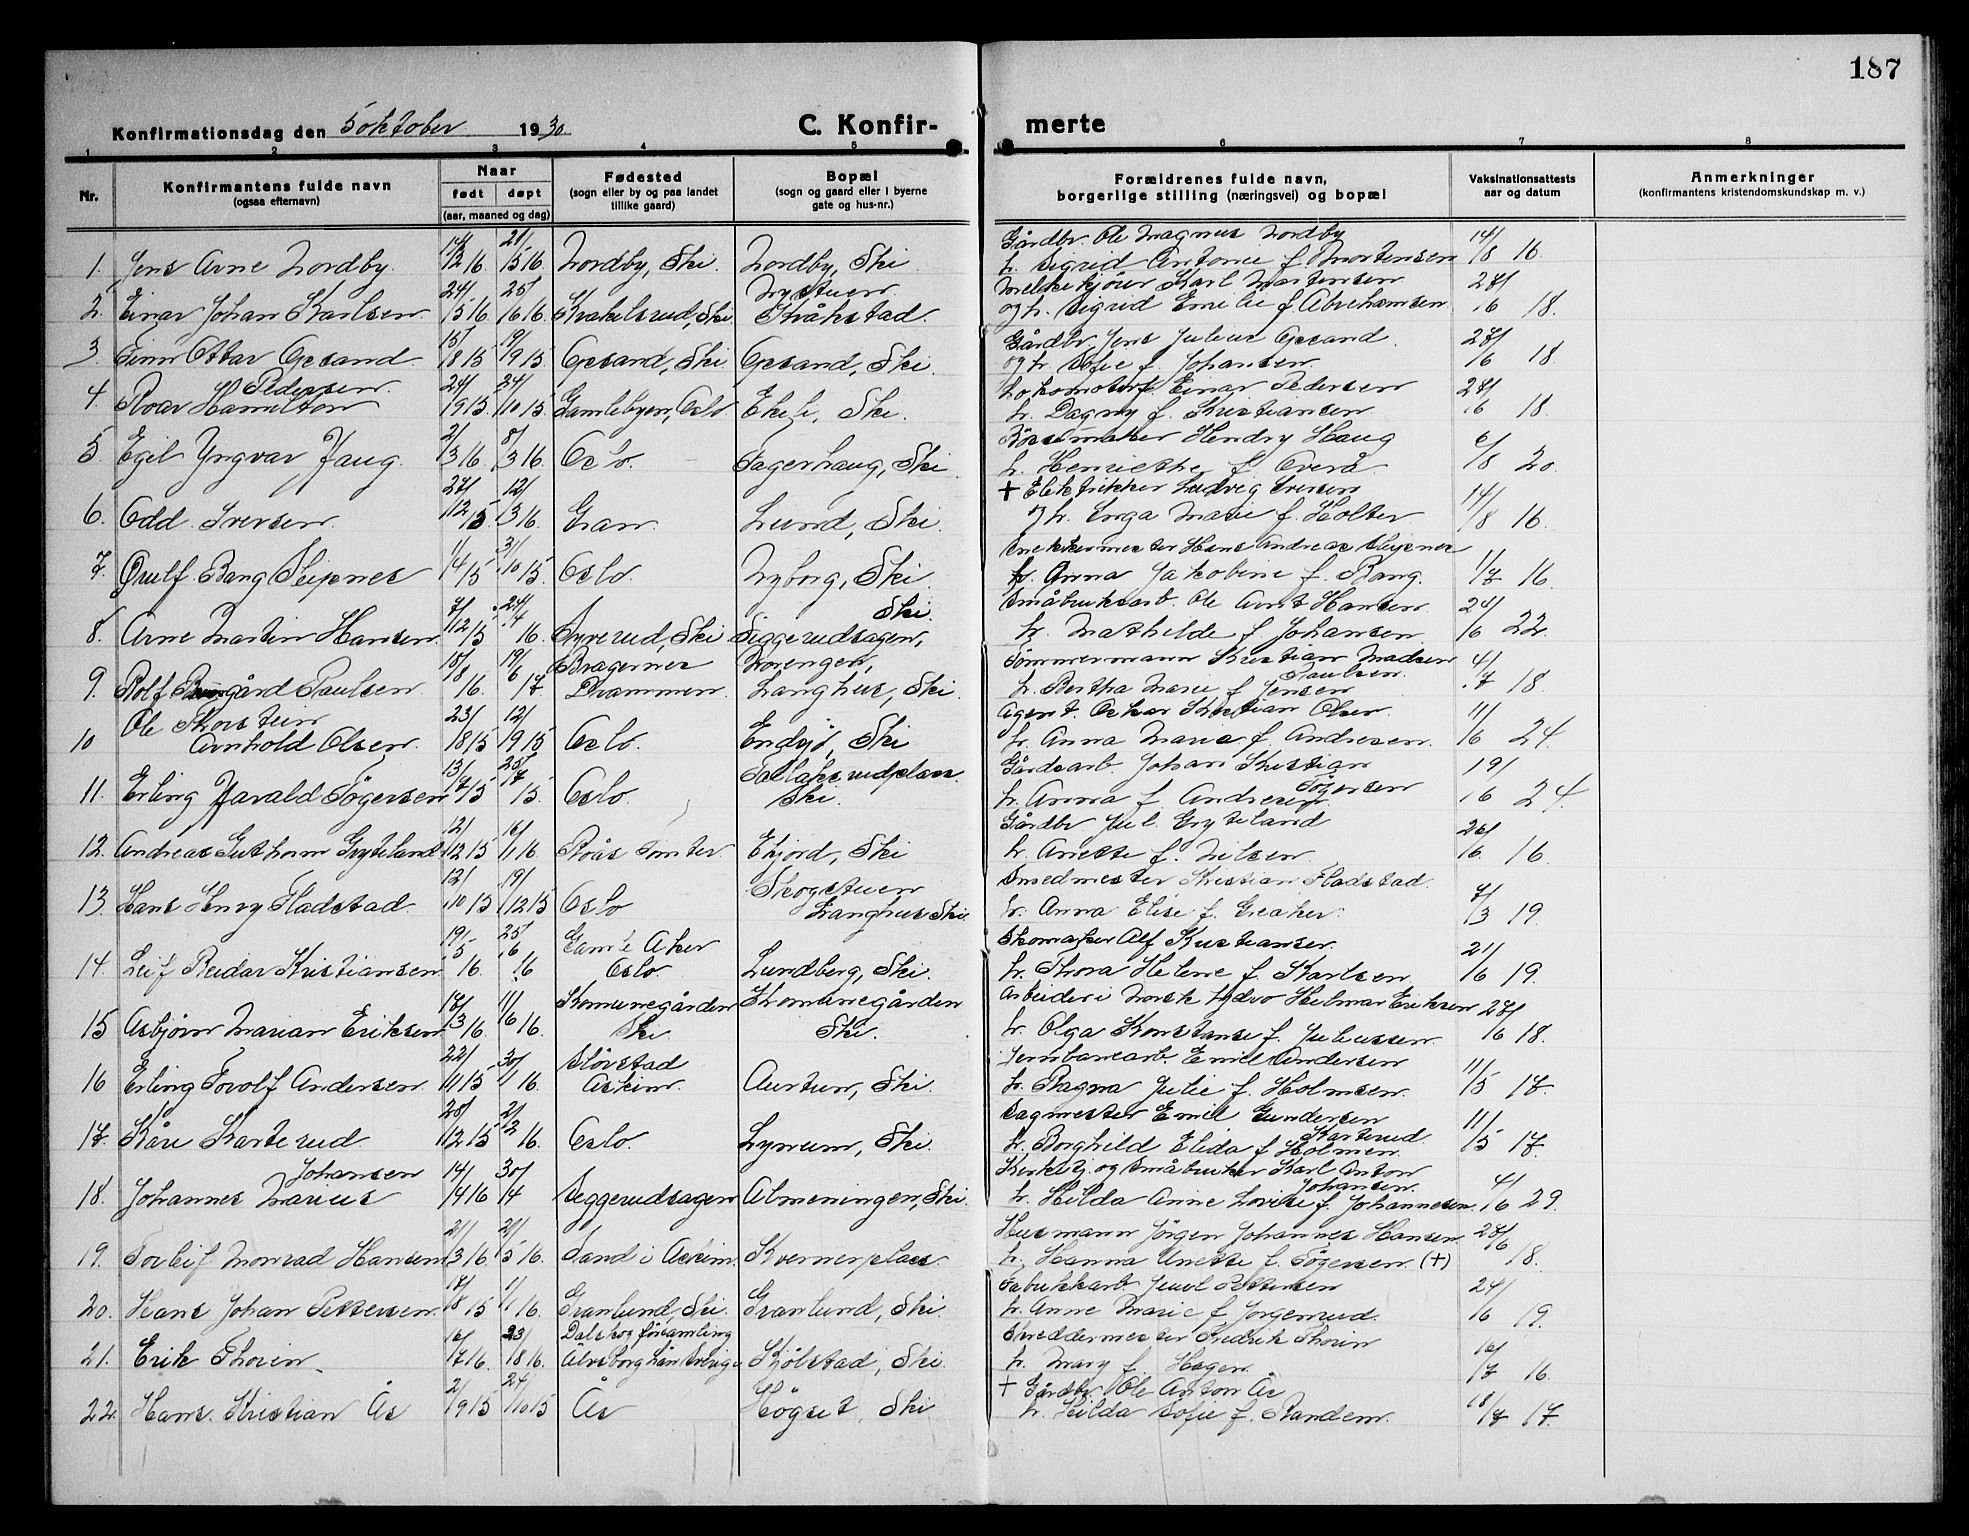 187
Konfirmationsdag den 5 oktober 1930
C. Konfir-
merte
1 2 3 4 5 6 7 8
Nr.
Konfirmantens fulde navn
(ogsaa efternavn)
Naar
født døpt
(aar, maaned og dag)
Fødested
(sogn eller by og paa landet
tillike gaard)
Bopæl
(sogn og gaard eller i byerne
gate og hus-nr.)
Forældrenes fulde navn,
borgerlige stilling (næringsvei) og bopæl
Vaksinationsattests
aar og datum
Anmerkninger
(konfirmantens kristendomskundskap m. v.)
1. Jens Arne Nordby. 14/12 16 21/5 16 Nordby, Ski. Nordby, Ski. Gårdbr. Ole Magnus Nordby
h. Sigrid Antonie f. Mortensen 14/8 16.
2. Einar Johan Karlsen. 24/5 16 25/6 16 Krakelsrud, Ski Nystuen Kråkstad. Karl Martensen
og h. Sigrid Emelie f. Abrahamsen. 28/6 18.
3. Finn Ottar Opsand 15/8 15 19/9 15 Opsand, Ski Opsand, Ski. Gårdbr. Jens Julius Opsand.
og h. Sofie f. Johansen. 28/6 18.
4. Roar Hamilton Pedersen. 24/9 15 24/10 15 Gamlebyen, Oslo Ekeli, Ski. Einar Pedersen
h. Dagny f. Kristiansen. 28/6 18.
5. Egil Yngvar Haug. 2/3 16 8/3 16 Oslo. Fagerhaug, Ski Børsemaker Hendry Haug
h. Henriette f. Overå 6/8 20.
6. Odd Iversen. 27/12 15 12/3 16 Gran. Lund, Ski. + Elektrikker Ludvig Iversen
og h. Inga Marie f. Holter. 14/8 16.
7. Ørulf Bang Slipnes 1/4 15 31/10 15. Oslo. Nyborg, Ski. Snekkermester Hans Andreas Slipnes
h. Anna Jakobine f. Bang. 1/7 16.
8. Arne Martin Hansen. 7/12 15 24/4 16. Syverud, Ski Siggerudsagen, Ski. Småbruksarb. Ole Arnt Hansen.
h. Mathilde f. Johansen. 24/6 22.
9. Rolf Paulsen. 15/8 16. 19/6 17 Bragernes Drammen. Langhus, Ski. Tømmermann Kristian Madsen Paulsen.
h. Bertha Marie f. Jensen. 4/7 18.
10 Ole Thorstein
Arnhold Olsen. 23/8 15 12/9 15 Oslo. Endsjø, Ski Agent. Oskar Kristian Olsen.
h. Anna Marie f. Andresen. 11/6 24.
11. Erling Harald Tøgersen 13/7 15 25/7 15. Oslo. Ski. Gårdsarb. Johan Kristian Tøgersen
h. Anna f. Andresen. 19/6 24.
12. Andreas Guthorm Gryteland 12/12 15 16/1 16. Roås Tomter. Ekjord, Ski Gårdbr. Jul. Gryteland
h. Anette f. Nilsen. 26/6 16.
13. Hans Henry Fladstad. 12/10 15 19/12 15 Oslo Skogstuen Langhus Ski. Smedmester Kristian Fladstad.
h. Anna Elise f. Greaker. 7/3 19.
14. Leif Reidar Kristiansen 19/5 16. 25/6 16 Gamle Aker Oslo Lundberg, Ski. Skomaker Alf Kristiansen.
h. Thora Helene f. Karlsen. 21/6 19.
15 Asbjørn Marian Eriksen 17/3 16. 11/6 16. Komunegården Ski. Komunegården Ski. Arbeider i Norsk Hydro Helmar Eriksen
h. Olga Konstanse f. Juliussen. 28/6 18.
16 Erling Torolf Andersen. 22/11 15 30/1 16. Askim. Aurtun, Ski. Jernbanearb. Emil Andersen
h. Ragna Julie f. Holmsen. 11/5 17.
17. Kåre Karterud. 20/12 15 2/2 16. Oslo. Lynum, Ski. Sagmester Emil Gundersen Karterud
h. Borghild Elida f. Holmen. 11/5 17.
18. Johannes Marius Johansen 14/4 16 30/4 Siggerudsagen Almeningen, Ski. Småbruker Karl Anton Johansen.
h. Hilda Anne Lovise f. Johannesen. 4/6 29.
19. Torleif Monrad Hansen 21/3 16. 21/5 16. Sand i Askim. Kvernerplass. Husmann Jørgen Johannes Hansen.
h. Hanna Anette f. Tøgersen. (+) 28/6 18.
20. Hans Johan Pettersen. 18/8 15 1/1 16. Granlund, Ski. Granlund, Ski. Fabrikkarb. Pettersen
h. Anne Marie f. Jørgenrud. 24/6 19.
21. Erik Thorin. 16/7 16. 23/8 16. Dalskog församling Älvsborg län Sverige Kjølstad, Ski. Skreddermester Fredrik Thorin
h. Mary f. Hagen. 16/7 16.
22. Hans Kristian Ås 2/9 15 24/10 15 Ås Høgset, Ski + Gårdbr. Ole Anton Ås
h. Hilda Sofie f. Randem. 18/7 17.